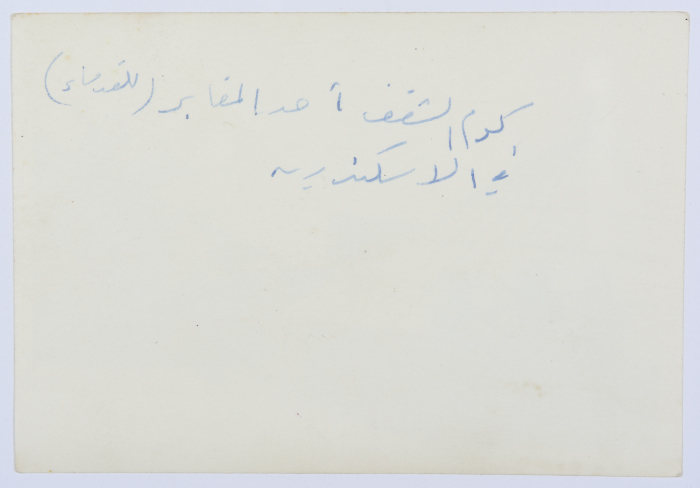 كوم الشقف أحد المقابر (للقدماء)
في الاسكندرية